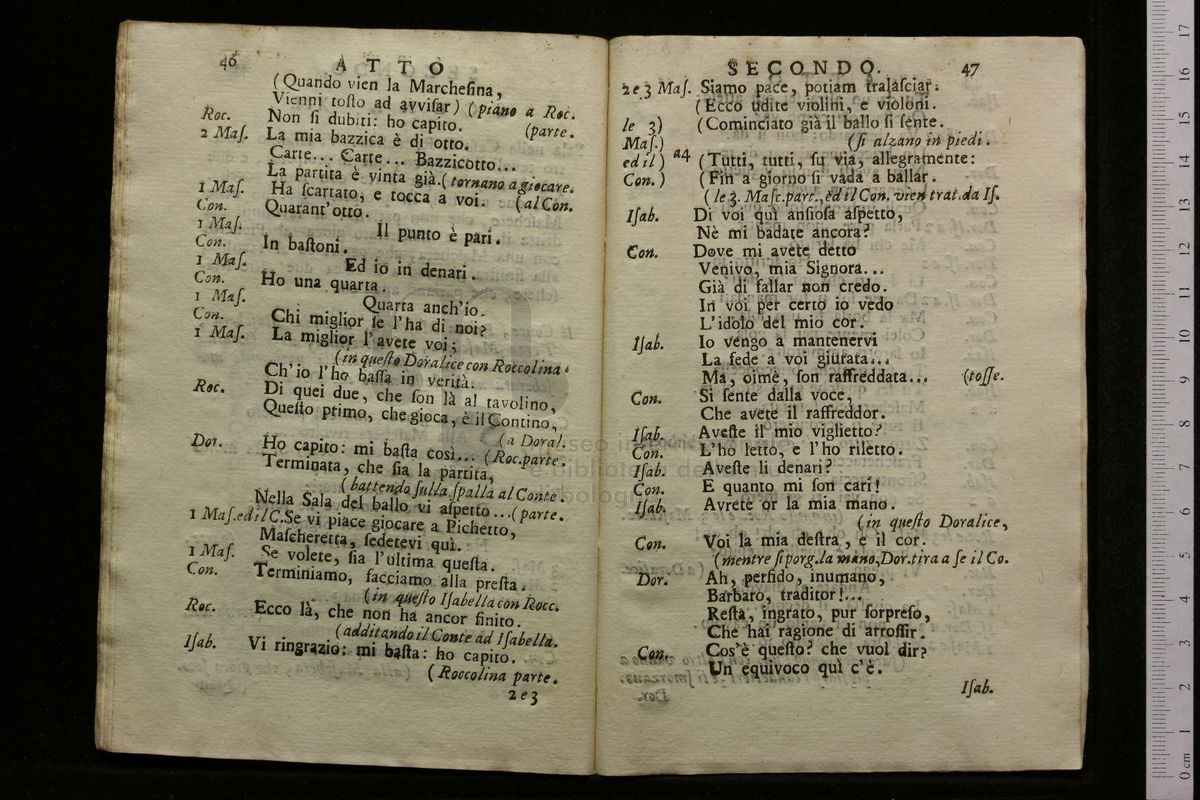 46 ATTO
(Quando vien la Marchesina,
Vienni tosto ad avvisar) (piano a Roc.
Roc. Non si dubiti: ho capito. (parte.
2 Mas. La mia bazzica è di otto.
Carte... Carte... Bazzicotto...
La partita è vinta già. (tornano a giocare.
1 Mas. Ha scartato, e tocca a voi. (al Con.
Con. Quarant'otto.
1 Mas. Il punto è pari.
Con. In bastoni.
1 Mas. Ed io in denari.
Con. Ho una quarta.
1 Mas. Quarta anch'io.
Con. Chi miglior se l'ha di noi?
1 Mas. La miglior l'avete voi;
(in questo Doralice con Roccolina.
Ch'io l'ho bassa in verità.
Roc. Di quei due, che son là al tavolino,
Questo primo, che gioca, è il Contino,
(a Doral.
Dor. Ho capito: mi basta così... (Roc. parte.
Terminata, che sia la partita,
(battendo sulla spalla al Conte.
Nella Sala del ballo vi aspetto... (parte.
1 Mas. ed il C. Se vi piace giocare a Pichetto,
Mascheretta, sedetevi quì.
1 Mas. Se volete, sia l'ultima questa.
Con. Terminiamo, facciamo alla presta.
(in questo Isabella con Rocc.
Roc. Ecco là, che non ha ancor finito.
(additando il Conte ad Isabella.
Isab. Vi ringrazio: mi basta: ho capito.
(Roccolina parte.
2 e 3
SECONDO. 47
2 e 3 Mas. Siamo pace, potiam tralasciar:
(Ecco udite violini, e violoni.
le 3) (Cominciato già il ballo si sente.
Mas.) (si alzano in piedi.
ed il) a4 (Tutti, tutti, su via, allegramente:
Con.) (Fin a giorno si vada a ballar.
(le 3. Masc. part., ed il Con. vien trat. da Is.
Isab. Di voi quì ansiosa aspetto,
Nè mi badate ancora?
Con. Dove mi avete detto
Venivo, mia Signora...
Già di fallar non credo.
In voi per certo io vedo
L'idolo del mio cor.
Isab. Io vengo a mantenervi
La fede a voi giurata...
Ma, oimè, son raffreddata... (tosse.
Con. Si sente dalla voce,
Che avete il raffreddor.
Isab. Aveste il mio viglietto?
Con. L'ho letto, e l'ho riletto.
Isab. Aveste li denari?
Con. E quanto mi son cari!
Isab. Avrete or la mia mano.
(in questo Doralice,
Con. Voi la mia destra, e il cor.
(mentre si porg. la mano, Dor. tira a se il Co.
Dor. Ah, perfido, inumano,
Barbaro, traditor!...
Resta, ingrato, pur sorpreso,
Che hai ragione di arrossir.
Con. Cos'è questo? che vuol dir?
Un equivoco quì c'è.
Isab.